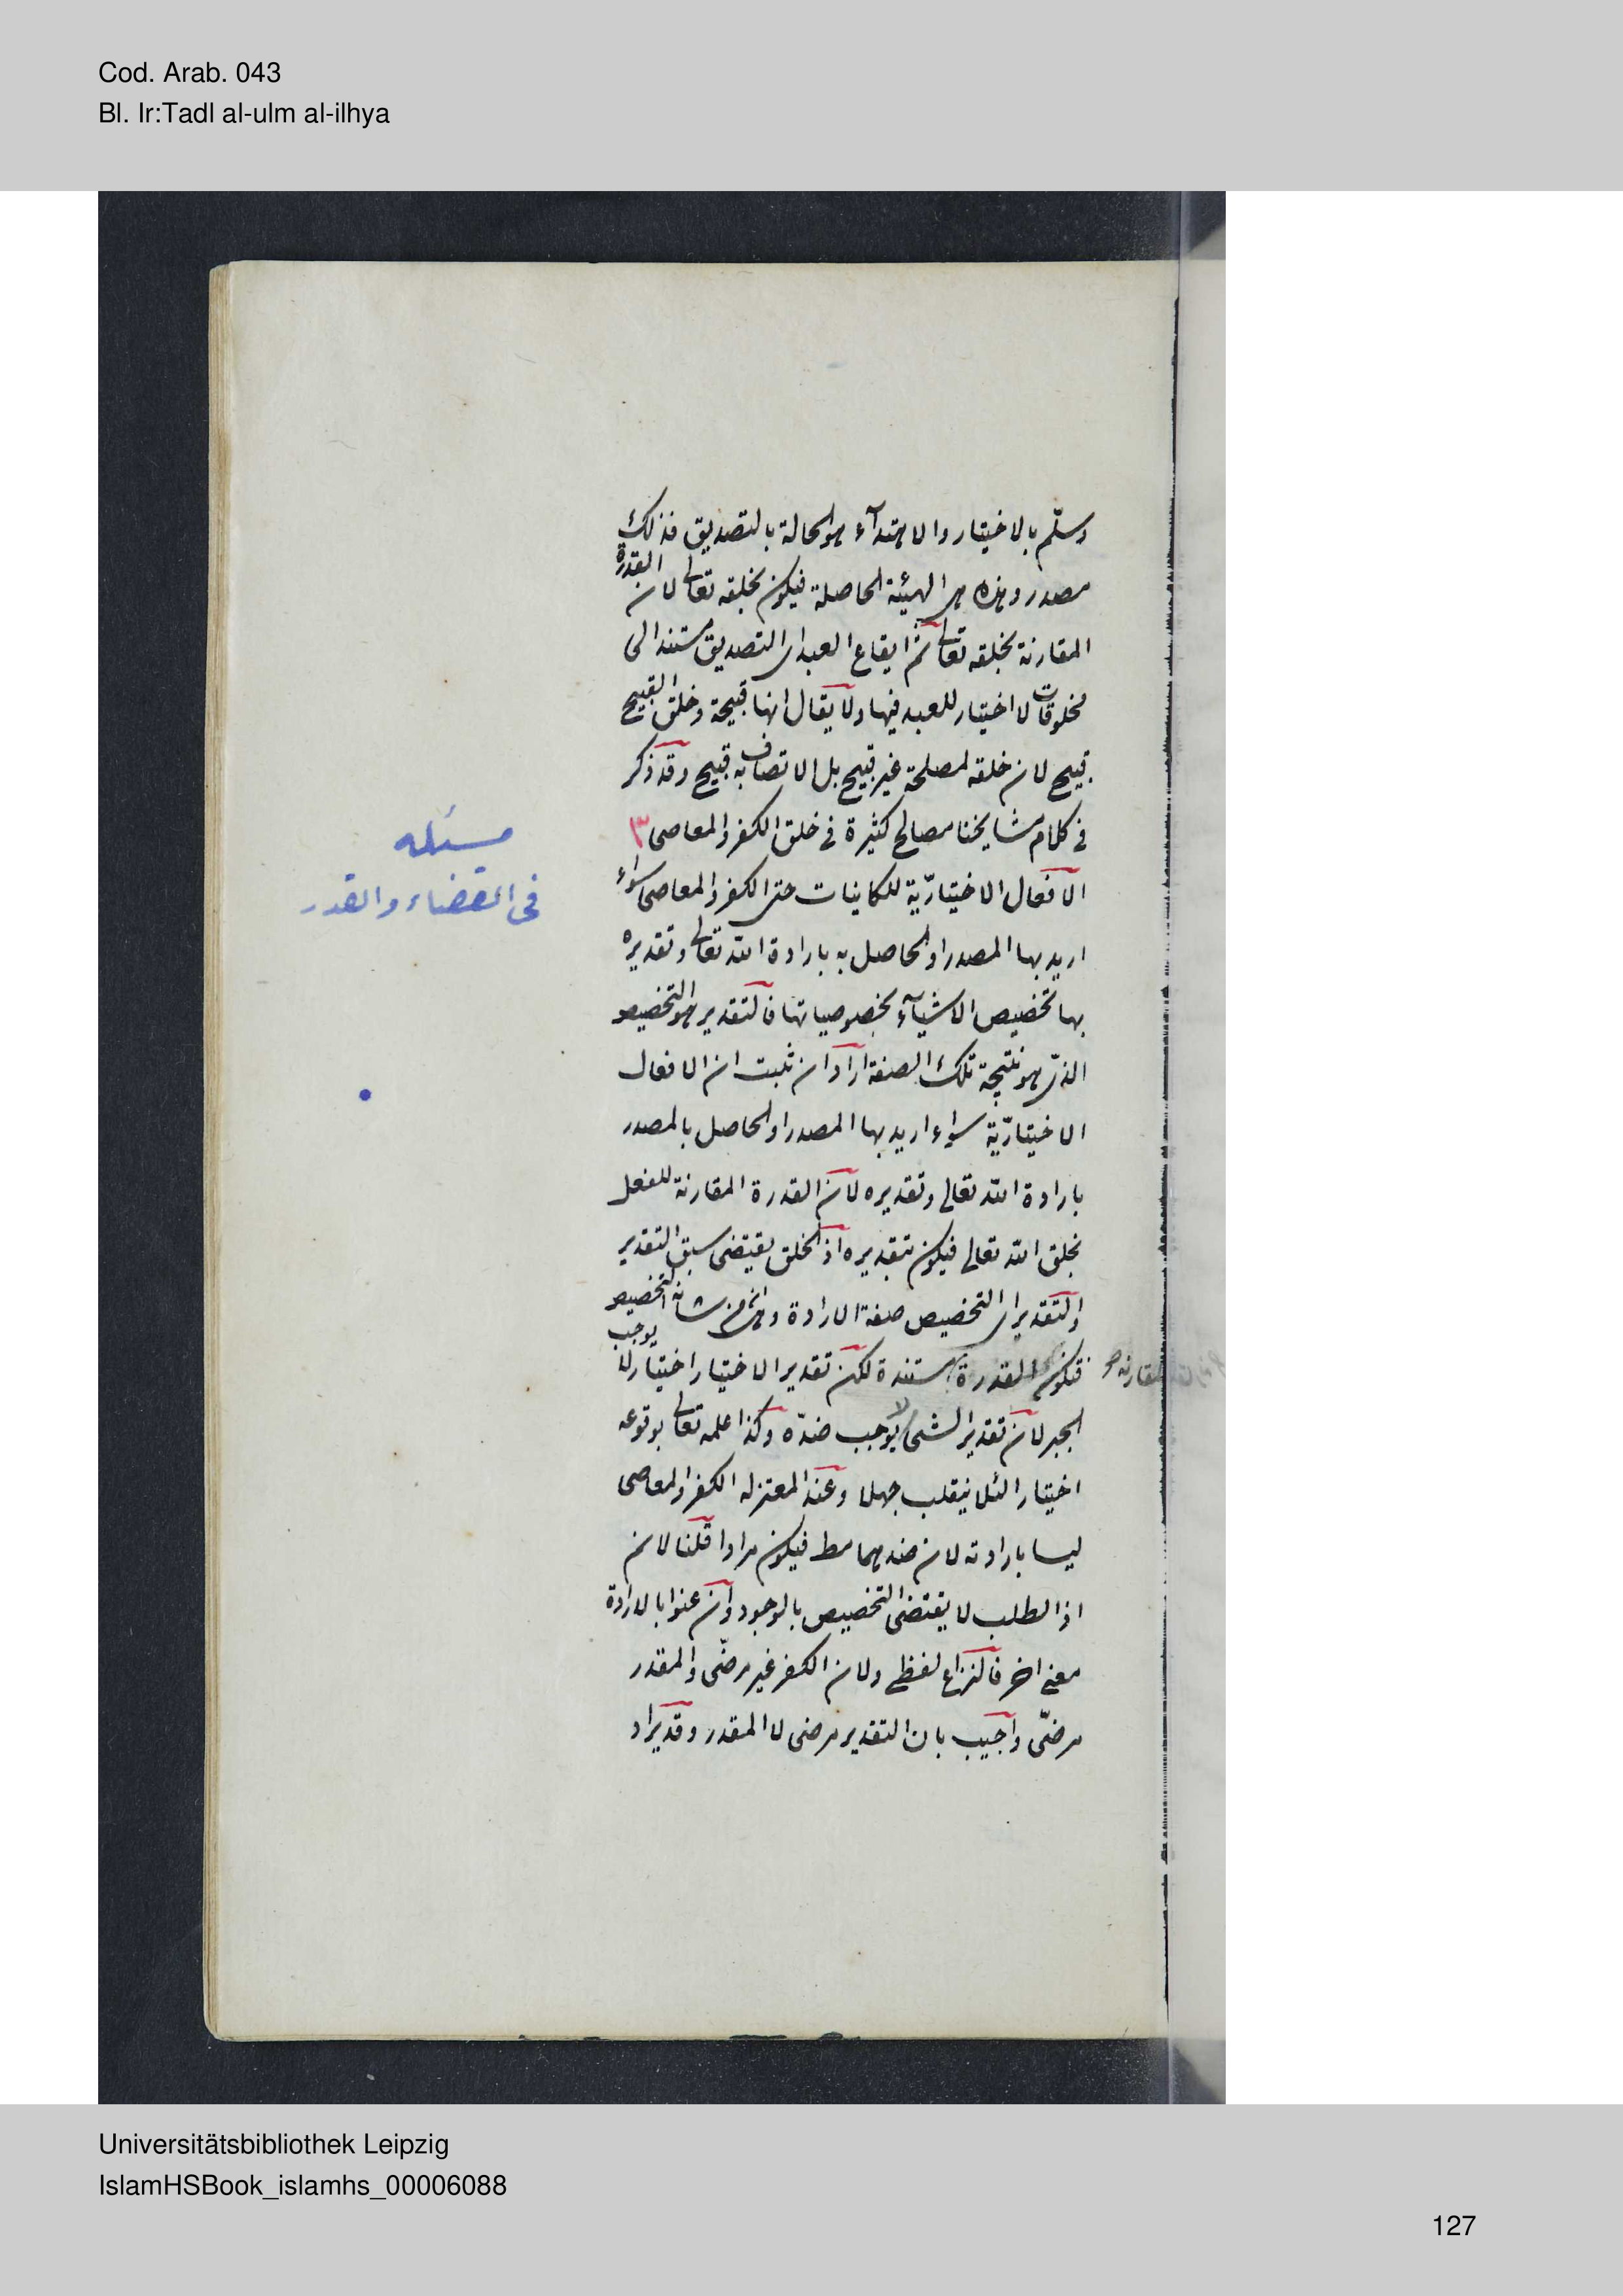 Cod. Arab. 043
Bl. Ir:Tadl al-ulm al-ilhya
وسلّم بالاختيار والاهتدآء هو الحالة بالتصديق فذلك
مصدر وهذه هى الهيئة الحاصلة فيكون بخلقه تعالى لان القدرة
المقارنة بخلقه تعالى ثم ايقاع العبد اى التصديق مستند الى
مخلوقات لا اختيار للعبد فيها ولا يقال انها قبيحة وخلق القبيح
قبيح لان خلقه لمصلحة غير قبيح بل الاتصاف به قبيح وقد ذكر
فى كلام مشايخنا مصالح كثيرة فى خلق الكفر والمعاصى ٣
مسئله
فى القضاء والقدر
الافعال الاختياريّة للكاينات حتى الكفر والمعاصى سواء
اريد بها المصدر او الحاصل به بارادة الله تعالى وتقديره
بها تخصيص الاشيآء بخصوصياتها فالتقدير هو التخصيص
الذى هو نتيجة تلك الصفة اراد ان نثبت ان الافعال
الاختياريّة سواء اريد بها المصدر او الحاصل بالمصدر
بارادة الله تعالى وتقديره لان القدرة المقارنة للفعل
بخلق الله تعالى فيكون بتقديره اذ الخلق يقتضى سبق التقدير
والتقدير اى التخصيص صفة الارادة وهى من شانه التخصيص
فتكون القدرة مستندة لكن تقدير الاختيار اختيارا لا يوجب
المقارنه صح
الجبر لان تقدير الشئ لا يوجب ضدّه وكذا علمه تعالى بوقوعه
اختيارا لئلا ينقلب جهلا وعند المعتزله الكفر والمعاصى
ليسا بارادته لان ضدهما مط فيكون مرادا قلنا لا نم
اذ الطلب لا يقتضى التخصيص بالوجود وان عنوا بالارادة
معنى اخر فالنزاع لفظى ولان الكفر غير مرضّى والمقدر
مرضّى واجيب بان التقدير مرضى لا المقدر وقد يراد
Universitätsbibliothek Leipzig
IslamHSBook_islamhs_00006088
127